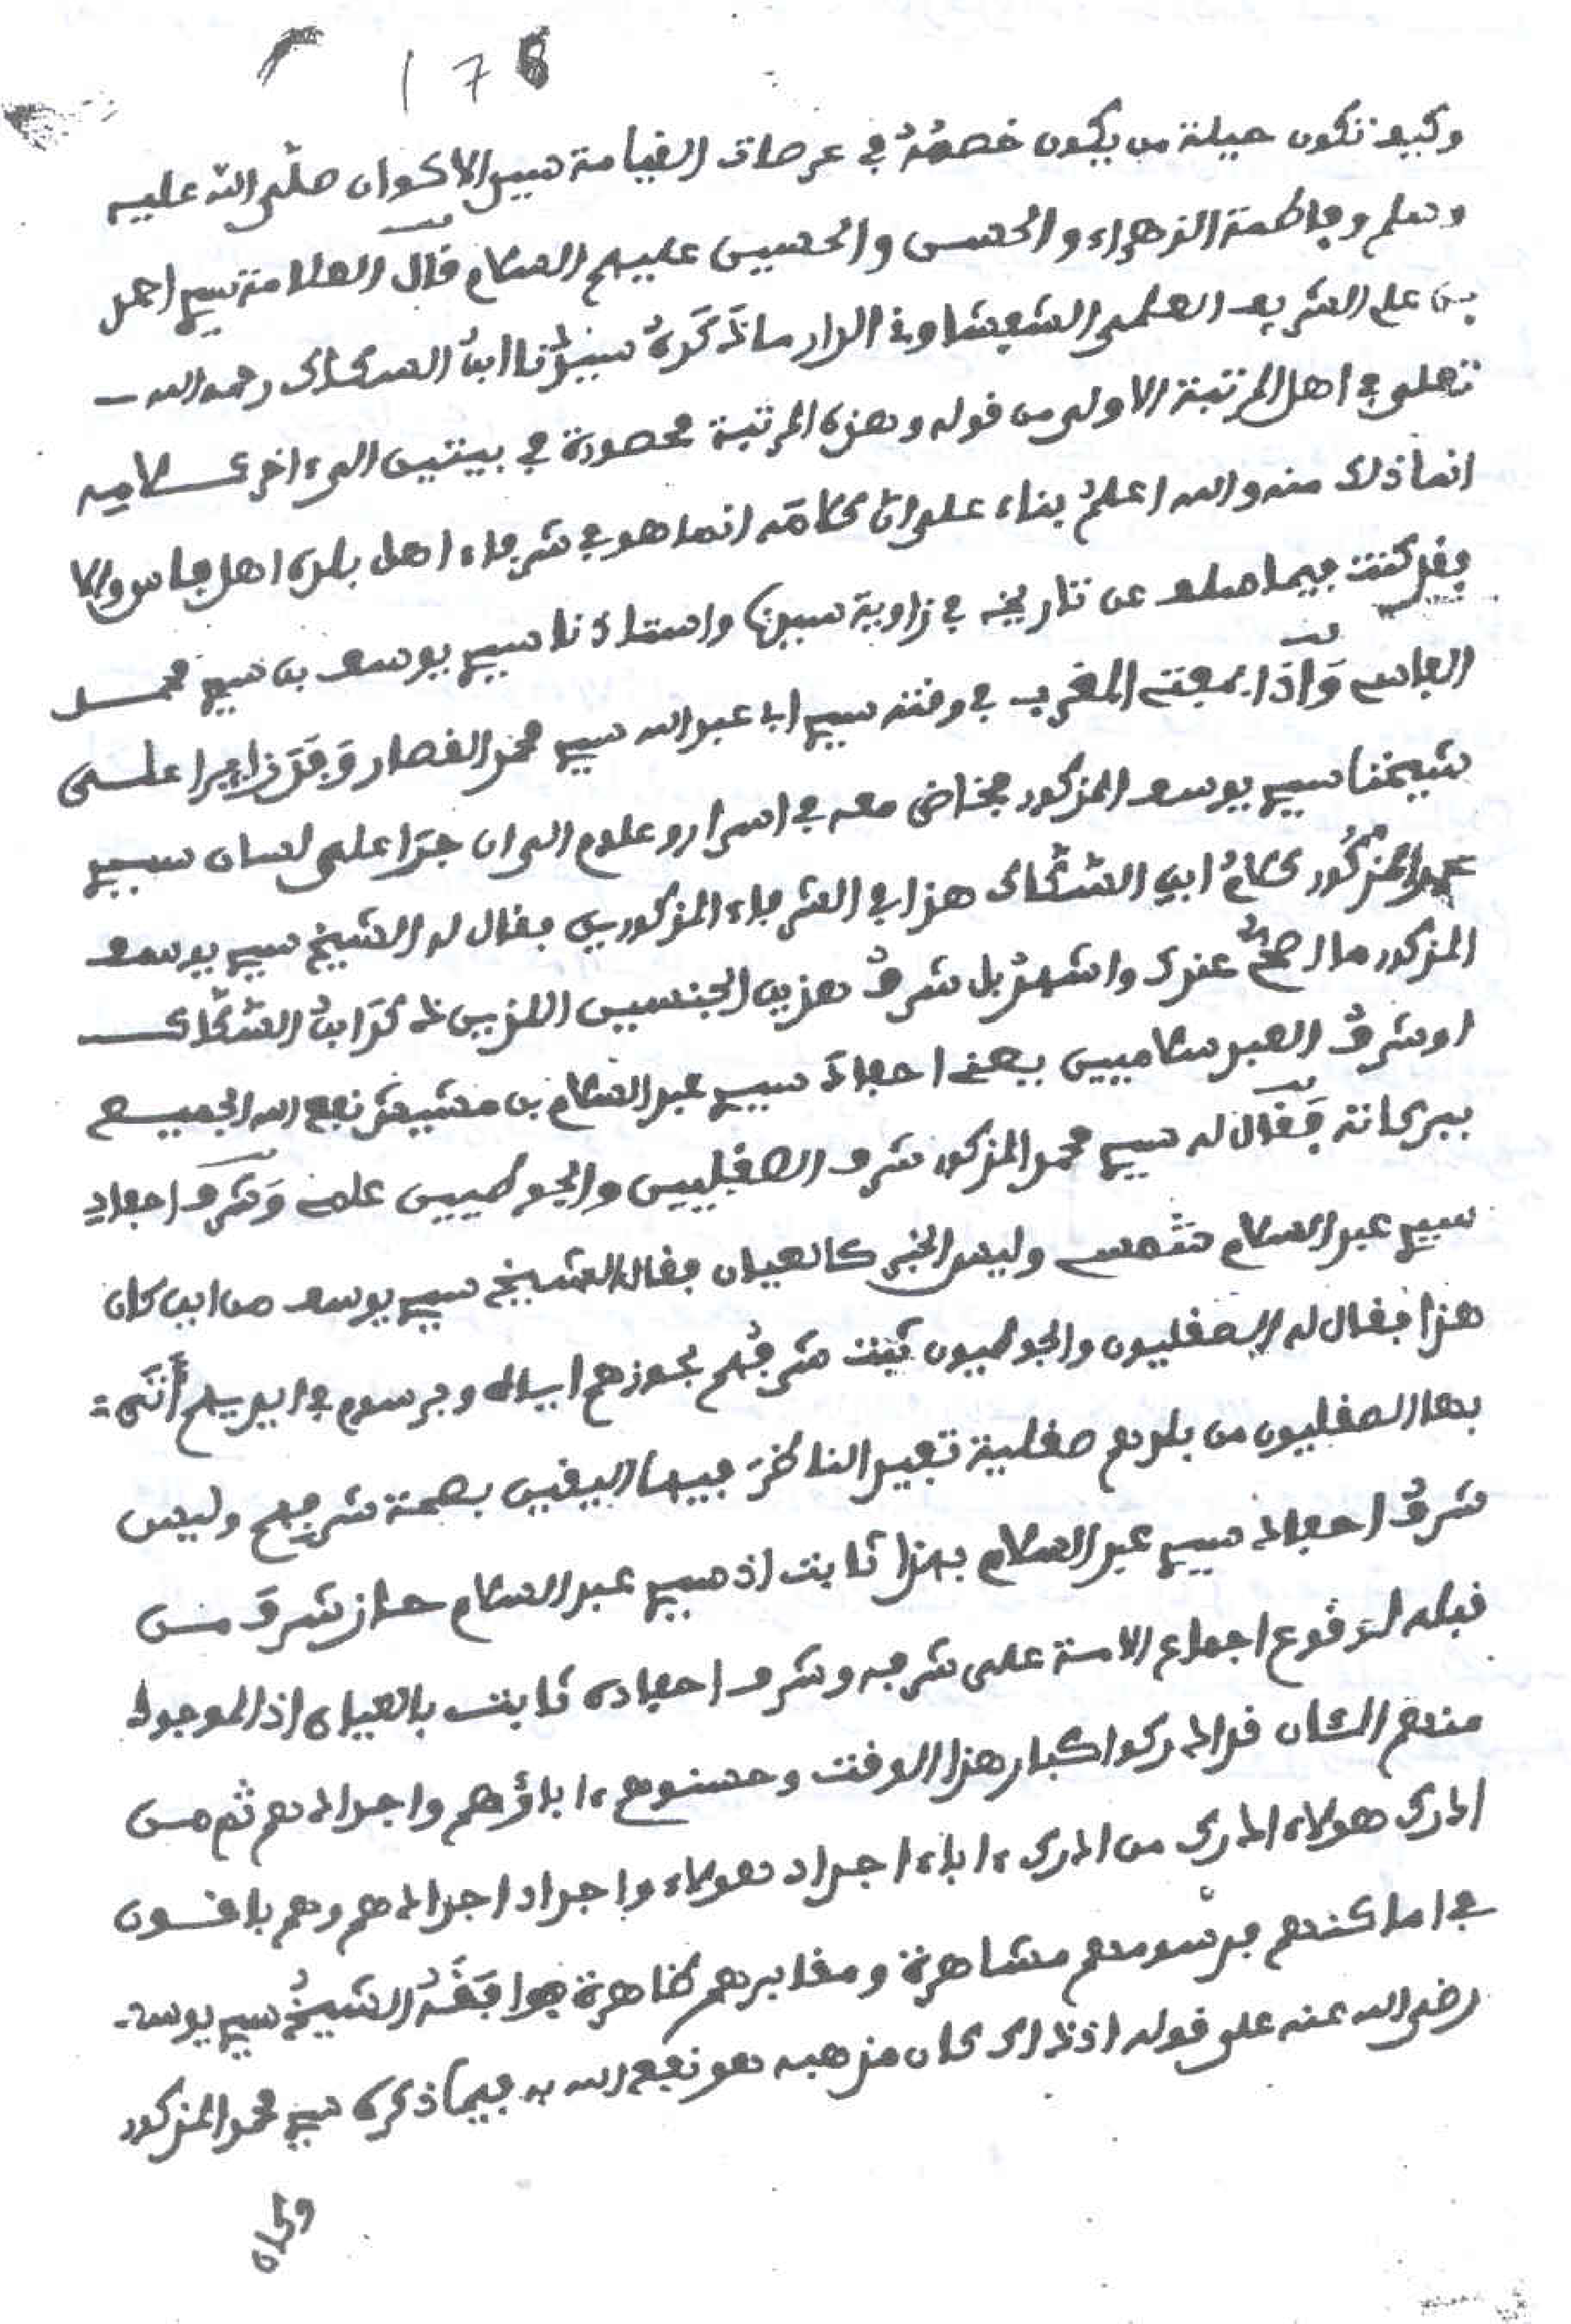 178
وكيف تكون حيلة من يكون خصمُهُ في عرصات القيامة سيد الاكوان صلّى الله عليه
وسلم وفاطمة الزهراء والحسن والحسين عليهم السلام قال العلامة سيدي احمد
بن علي الشريف العلمي الشفشاوني الدار ما ذَكَرَهُ سيدُنا ابنُ السكاك رحمه الله
تعلى في اهل المرتبة الاولى من قوله وهذه المرتبة محصورة في بيتين الى ءاخر كلامِه
انما ذلك منه والله اعلمُ بناء على انّ كلامَه انما هو في شرفاء اهل بلده اهل فاس والا
فقد كنت فيما سلف عن تاريخه في زاوية سيدنا واستاذنا سيدي يوسف بن سيدي محمد
الفاسي وَاذَا بمفتي المغرب في وقته سيدي ابي عبد الله سيدي محمد القصار وَفَدَ زايرا على
شيخنا سيدي يوسف المذكور فخاض معه في اسرار وعلوم الى ان جرَا على لسان سيدي
محمد المذكُور كلامُ ابن السّكّاك هذا في الشرفاء المذكورين فقال له الشيخ سيدي يوسف
المذكور ما اصحُّ عندك واشهرُ بل شرفُ هذين الجنسين اللذين ذكرَ ابنُ السّكّاك
او شرفُ العبد سلاميين يعني احفادَ سيدي عبد السلام بن مشيش نفع الله الجميع
ببركاته فَقَال له سيدي محمد المذكور شرف الصقليين والجوطيين علمي وَشرف احفاد
سيدي عبد السلام شَمسي وليس الخبر كالعيان فقال له الشيخ سيدي يوسف من اين كان
هذا فقال له الصقليون والجوطيون ثبت شرفُهم بحوزهم اياه وبرسوم في ايديهم أَتَى
بها الصقليون من بلدهم صقلية تفيد الناظرَ فيها اليقين بصحة شرفِهم وليس
شرفُ احفاد سيدي عبد السلام بهذا ثابت اذ سيدي عبد السلام حاز شرفَ من
قبله لوقوع اجماع الامة على شرفه وشرف احفاده ثابت بالعيان اذ الموجود
منهم الئان قد ادركوا كبار هذا الوقت وحسنوهم ءاباؤهم واجدادهم ثم من
ادرك هولاء ادرك من ادرك ءاباء اجداد هولاء واجداد اجدادهم وهم باقون
في اماكنهم فرسومهم مشاهدة ومقابرهم ظاهرة فوافَقَهُ الشيخُ سيدي يوسف
رضي الله عنه على قوله اذ ذاك كان مذهبه هو نفع الله به فيما ذكره سيدي محمد المذكور
وكان